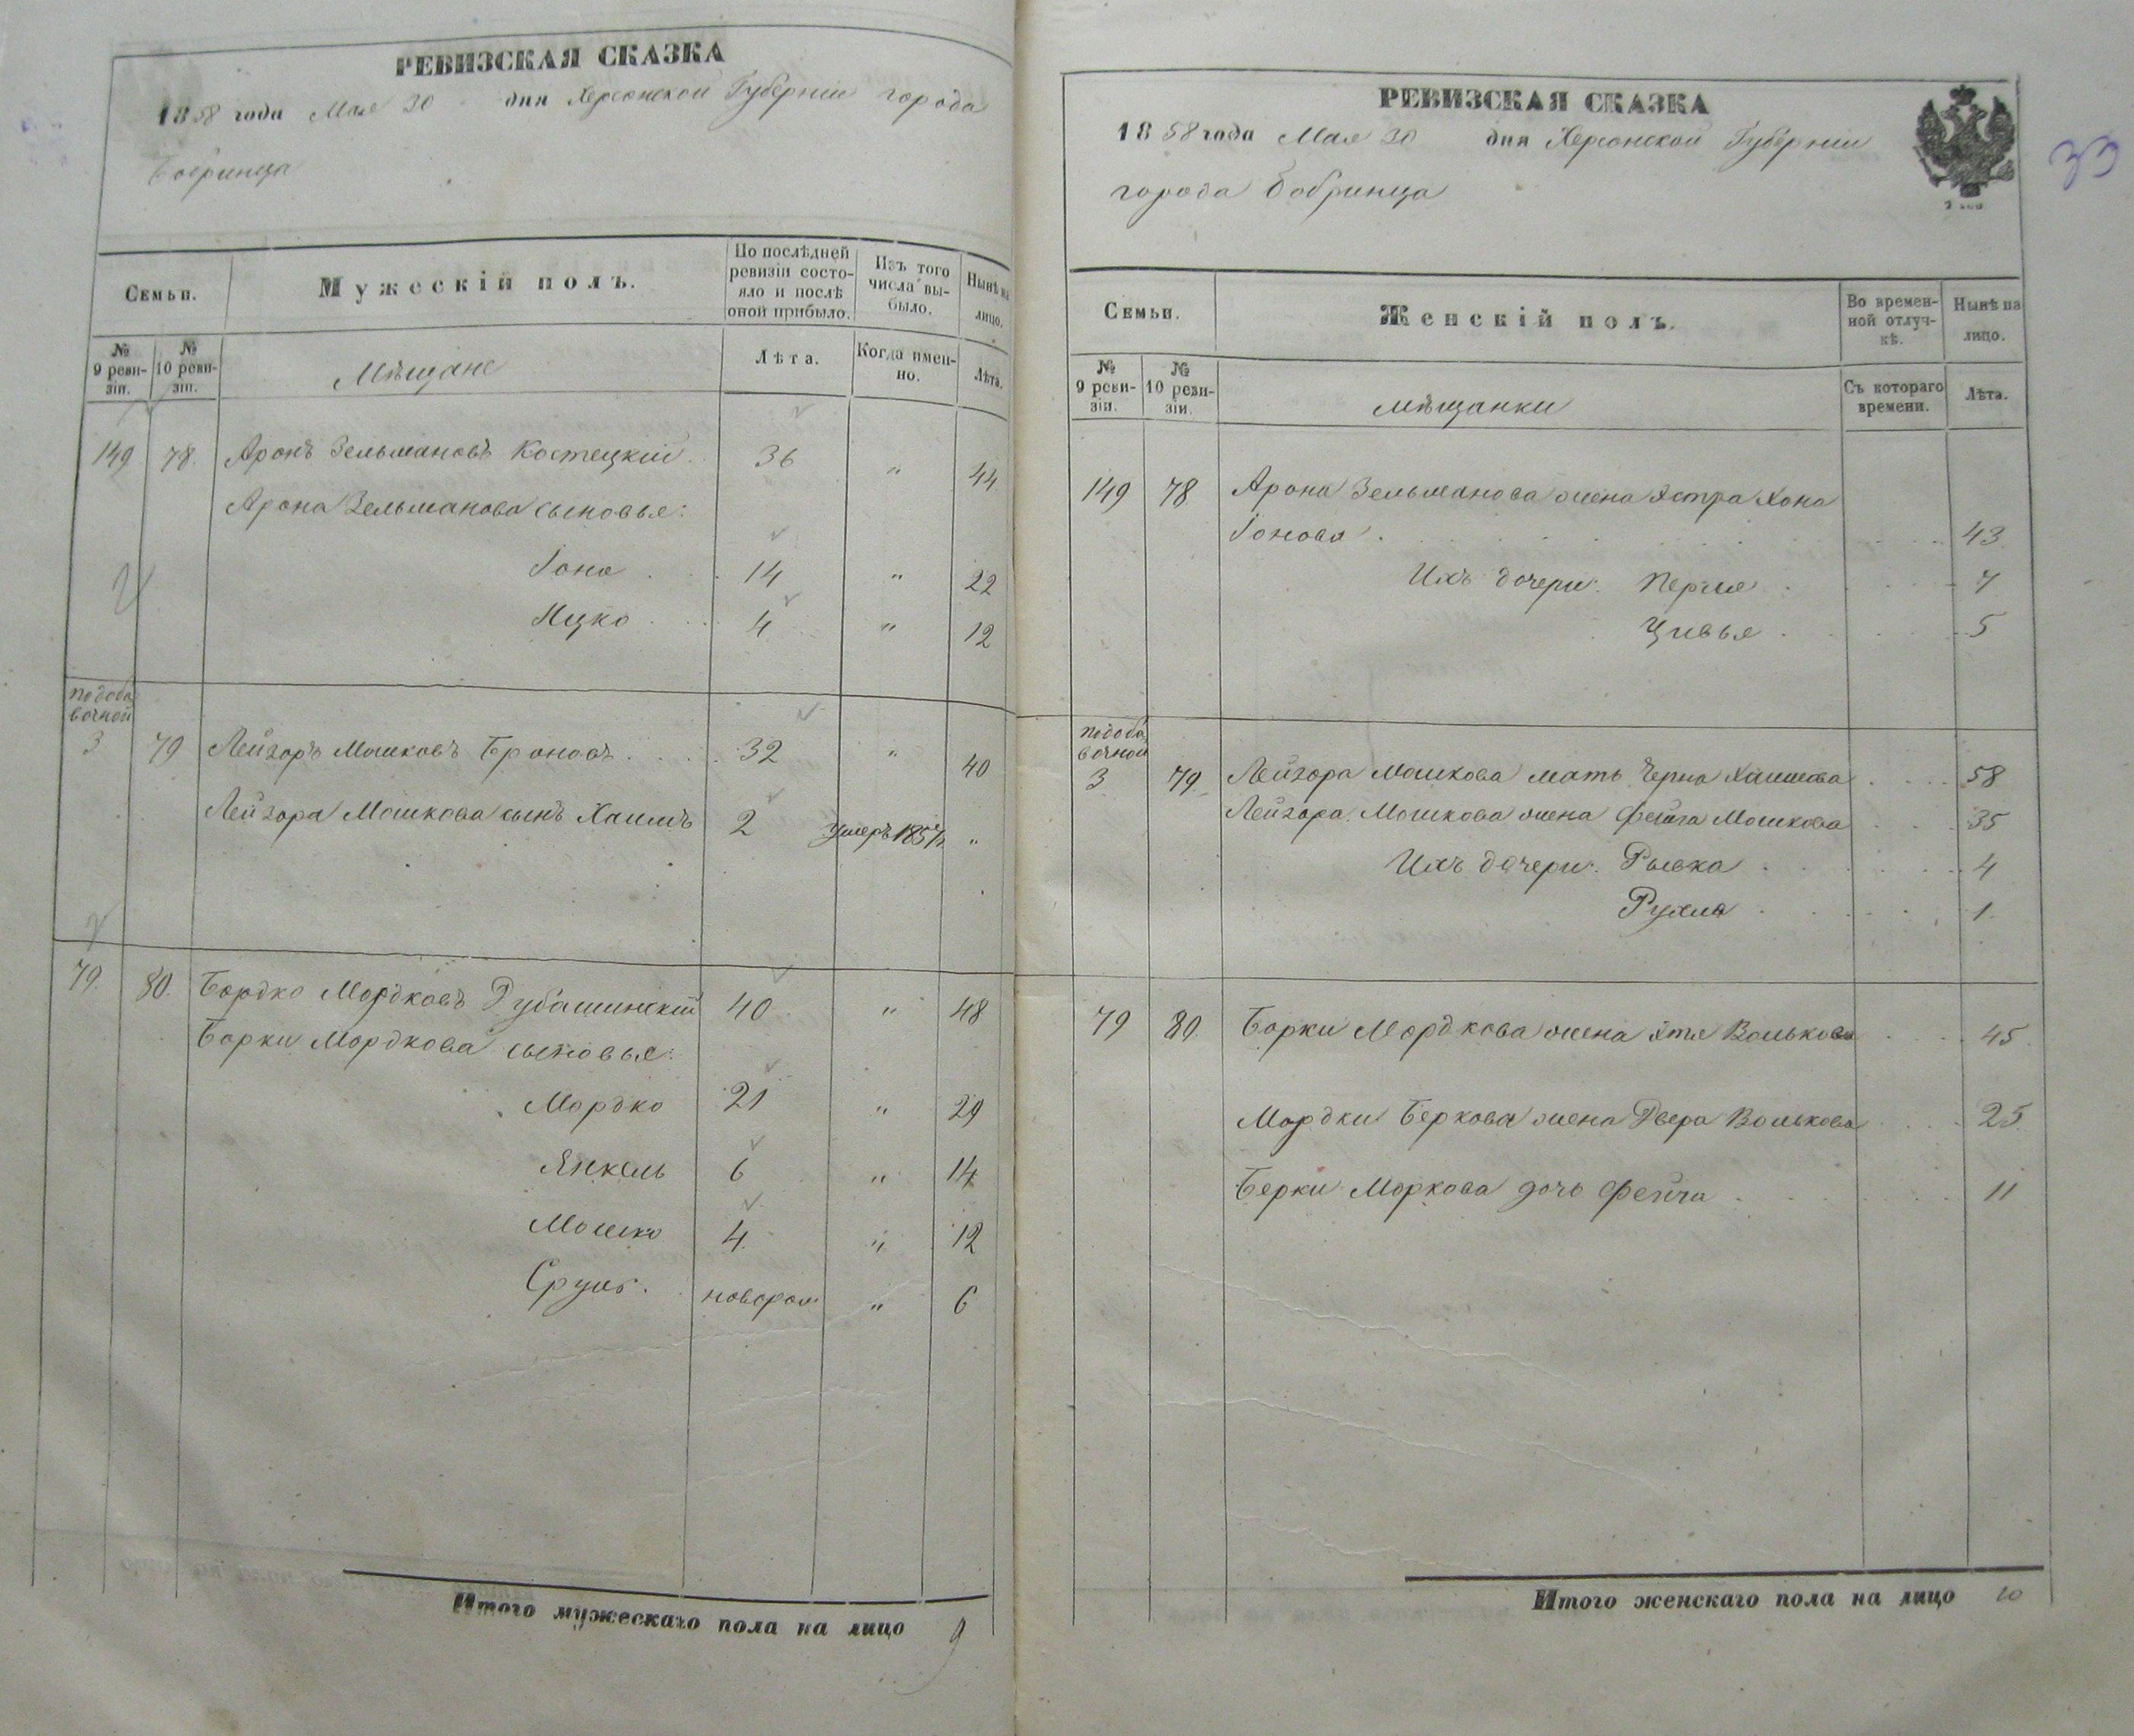 РЕВИЗСКАЯ СКАЗКА
1858 года Мая 30 дня Херсонской Губерніи города
Бобринца
Семьи.
Мужескій полъ.
По послѣдней ревизіи состояло и послѣ оной прибыло.
Изъ того числа выбыло.
Нынѣ на лицо.
№ 9 ревизіи.
№ 10 ревизіи.
Мѣщане
Лѣта.
Когда именно.
Лѣта.
149 78. Аронъ Зельмановъ Костецкій. 36 " 44
Арона Зельманова сыновья:
Іона . . 14 " 22
Ицко . . . 4 " 12
По доба
вочной
3 79 Лейзоръ Мошковъ Броновъ . . . . 32 " 40
Лейзора Мошкова сынъ Хаимъ 2 умеръ 1857 "
79. 80. Бордко Мордковъ Рубашинскій 40 " 48
Борки Мордкова сыновья:
Мордко 21 " 29
Янкель 6 " 14
Мошко 4. " 12
Сруль. новорож " 6
Итого мужескаго пола на лицо 9
РЕВИЗСКАЯ СКАЗКА
33
1858 года Мая 30 дня Херсонской Губерніи
города Бобринца
Семьи.
Женскій полъ.
Во временной отлучкѣ.
Нынѣ на лицо.
№ 9 ревизіи.
№ 10 ревизіи.
мѣщанки
Съ котораго времени.
Лѣта.
149 78. Арона Зельманова жена Эстра Хона
Іонова . 43.
Ихъ дочери: Перля . 7
Цивья . 5
По доба
вочной
3 79. Лейзора Мошкова мать Черна Хаимова . . . . 58
Лейзора Мошкова жена Фейга Мошкова . . . 35
Ихъ дочери: Рывка . 4
Рухля . 1.
79 80. Борки Мордкова жена Этя Волькова . . . . 45
Мордки Беркова жена Двера Волькова . . . . 25.
Берки Моркова дочь Фейга . 11
Итого женскаго пола на лицо 10